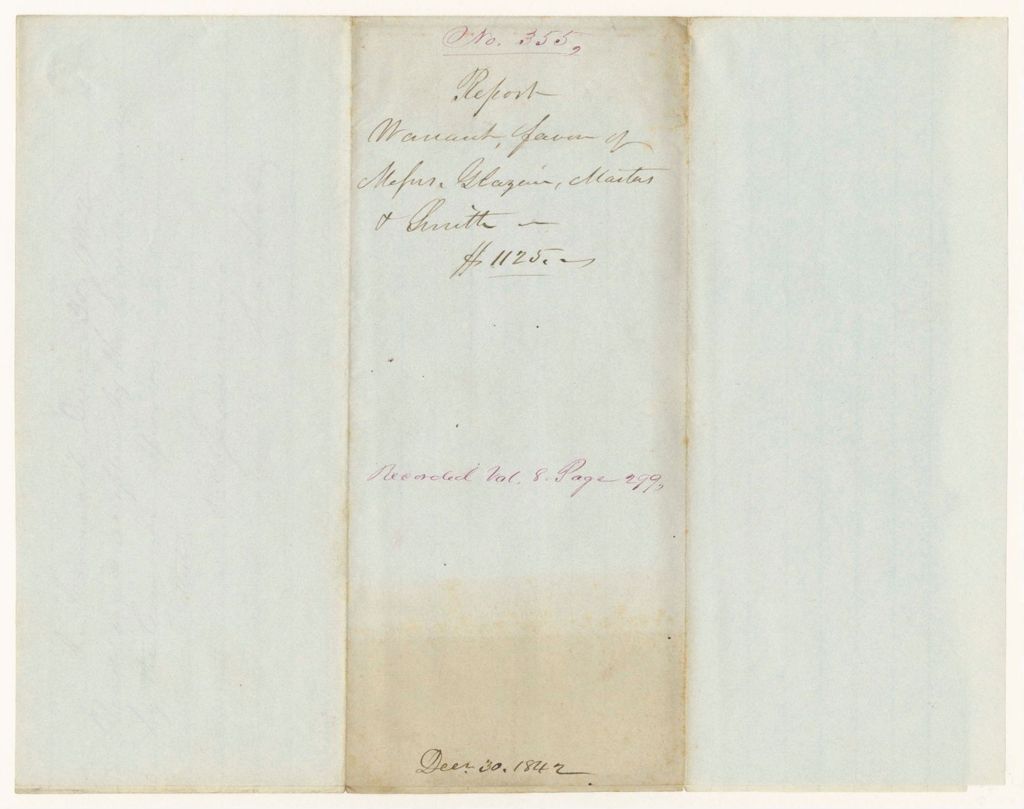 No. 355,
Report
Warrant, favor of
Messrs. Glazier, Masters
& Smith —
$1125.—
Recorded Vol. 8. Page 299,
Decr. 30. 1842